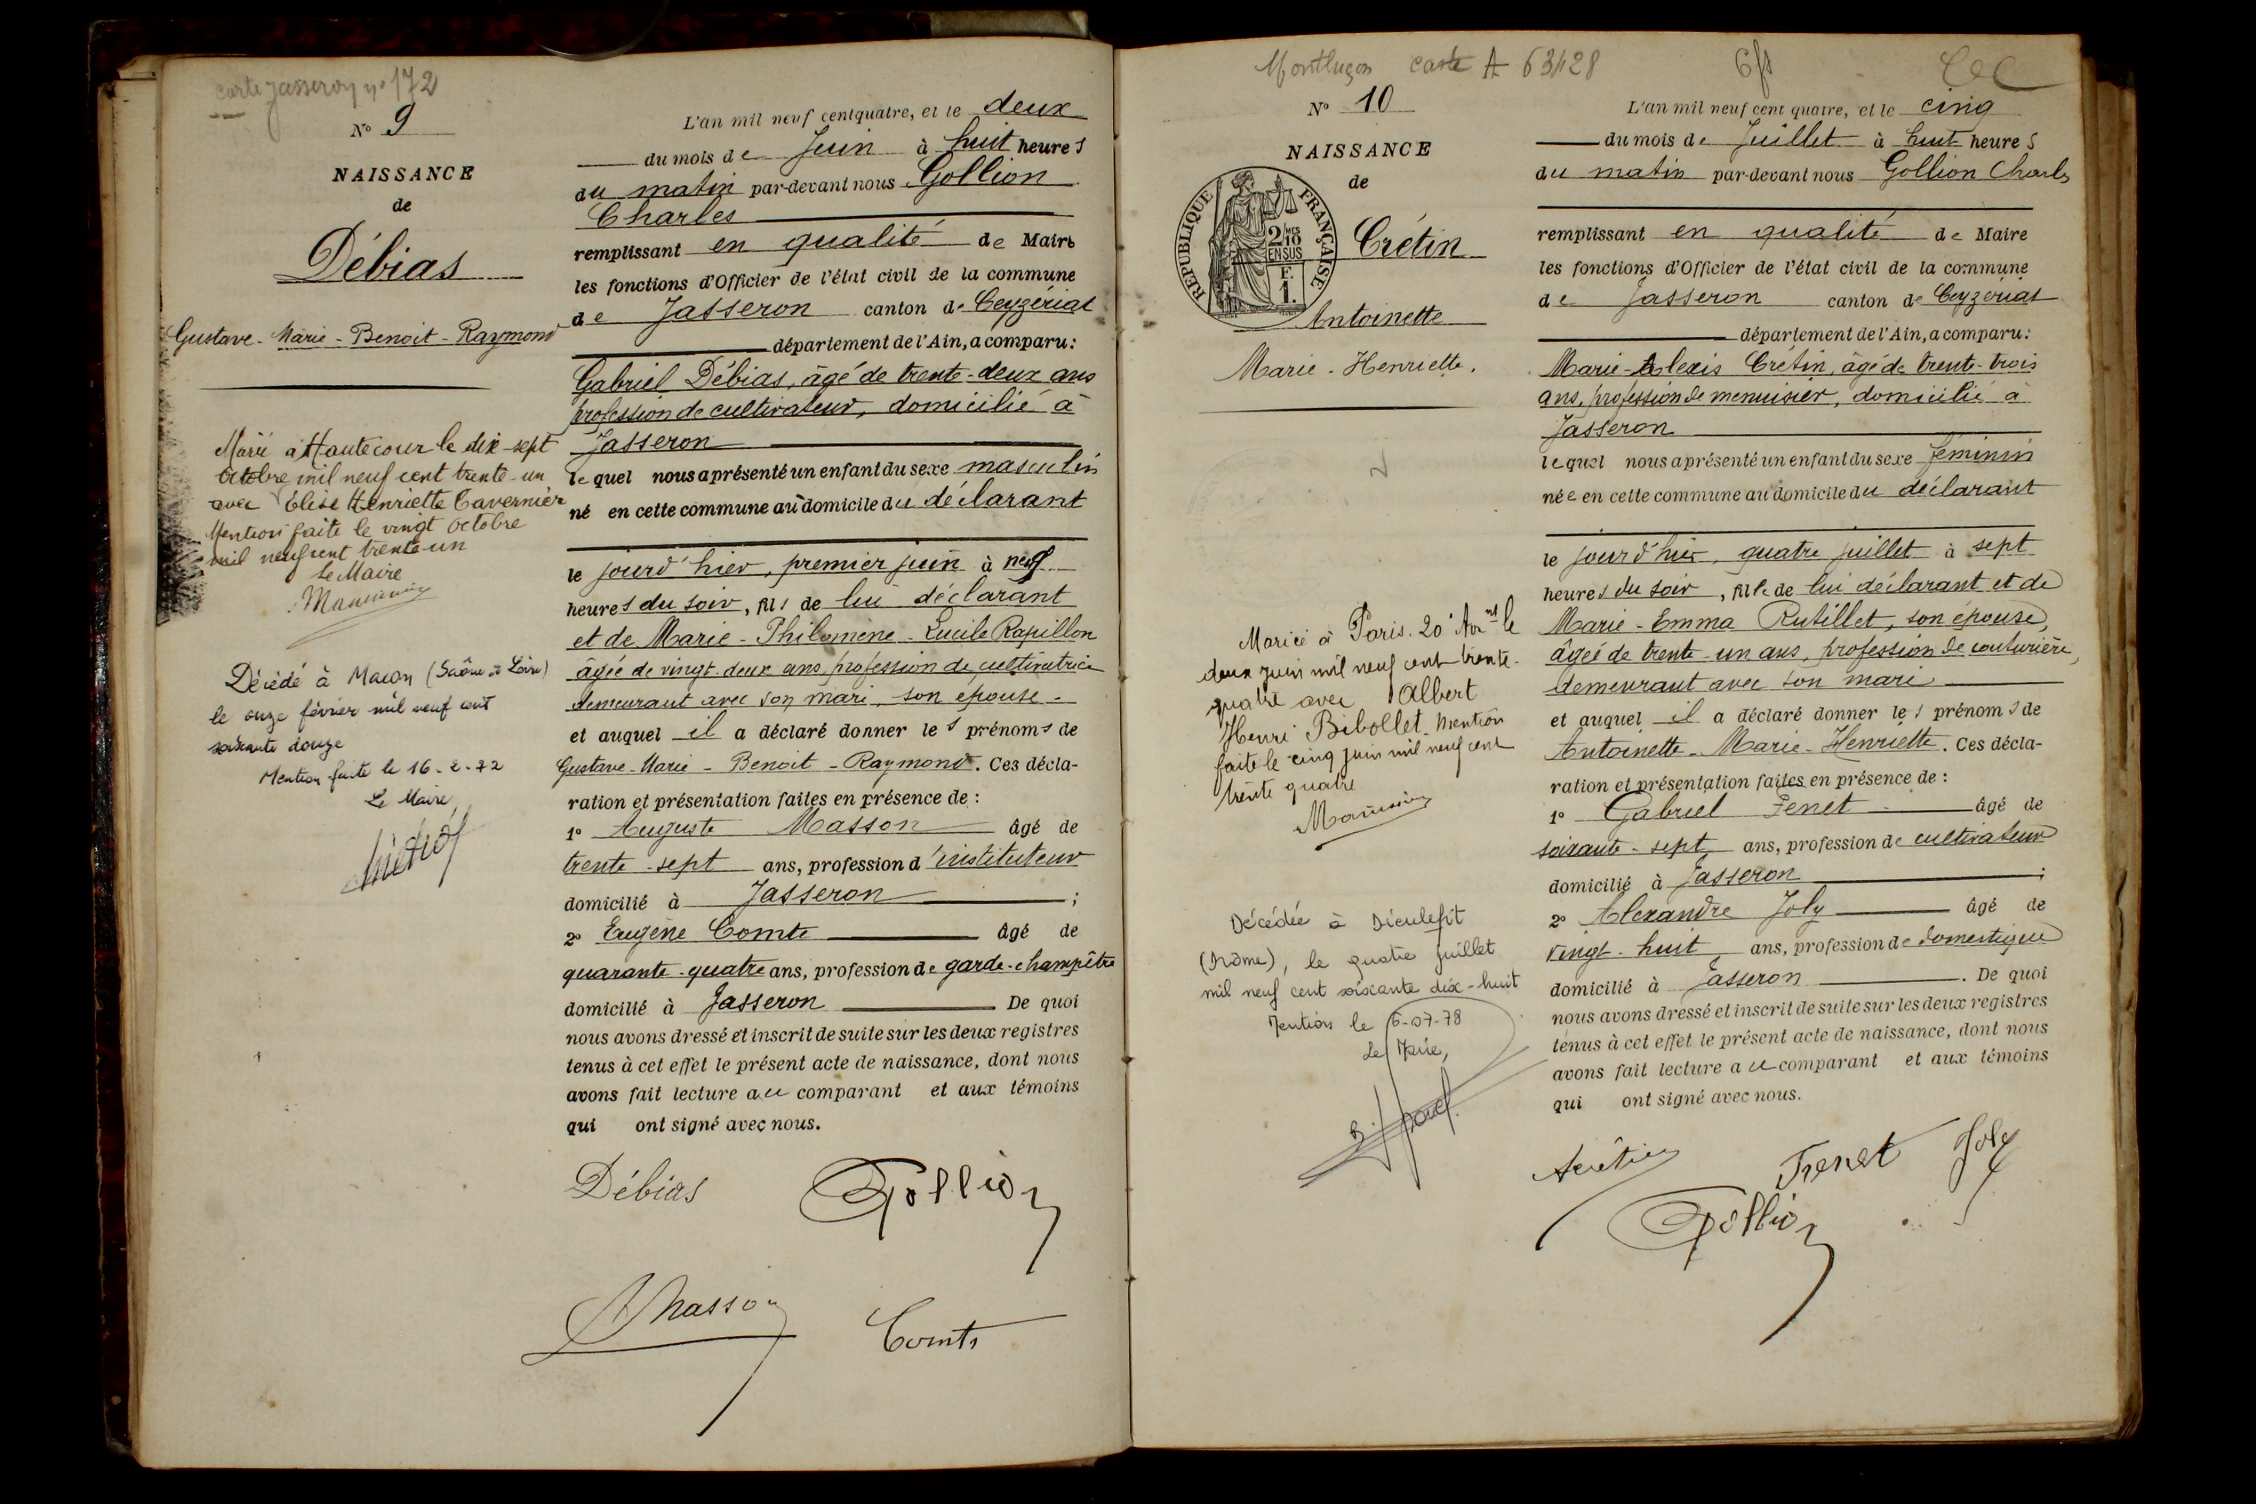 carte Jasseron nº 172
Nº 9
NAISSANCE
de
Débias
Gustave-Marie-Benoit-Raymond
Marié à Hautecour le dix-sept
octobre mil neuf cent trente-un
avec Elise Henriette Tavernier
Mention faite le vingt octobre
mil neuf cent trente-un
Le Maire
Décédé à Macon (Saône et Loire)
le onze février mil neuf cent
soixante douze
Mention faite le 16-2-72
Le Maire,
L'an mil neuf cent quatre, et le deux
du mois de Juin à huit heures
du matin par-devant nous Gollion
Charles
remplissant en qualité de Maire
les fonctions d'Officier de l'état civil de la commune
de Jasseron canton de Ceyzériat
département de l'Ain, a comparu:
Gabriel Débias, âgé de trente-deux ans
profession de cultivateur, domicilié à
Jasseron
lequel nous a présenté un enfant du sexe masculin
né en cette commune au domicile du déclarant
le jourd'hier, premier juin à neuf
heures du soir, fils de lui déclarant
et de Marie-Philomène-Lucile Rapillon
âgée de vingt-deux ans, profession de cultivatrice
demeurant avec son mari, son épouse-
et auquel il a déclaré donner les prénoms de
Gustave-Marie-Benoit-Raymond. Ces décla-
ration et présentation faites en présence de :
1º Auguste Masson âgé de
trente-sept ans, profession d'instituteur
domicilié à Jasseron ;
2º Eugène Comte âgé de
quarante-quatre ans, profession de garde-champêtre
domicilié à Jasseron De quoi
nous avons dressé et inscrit de suite sur les deux registres
tenus à cet effet le présent acte de naissance, dont nous
avons fait lecture au comparant et aux témoins
qui ont signé avec nous.
Débias Gollion
AMasson Comte
Montluçon carte A 63428
Nº 10
NAISSANCE
de
REPUBLIQUE FRANÇAISE
2 MES
10
EN SUS
F.
1.
Crétin
Antoinette
Marie-Henriette.
Mariée à Paris. 20e Arrnt le
deux juin mil neuf cent trente-
quatre avec Albert
Henri Bibollet. Mention
faite le cinq juin mil neuf cent
trente quatre
Décédée à Dieulefit
(Drôme), le quatre juillet
mil neuf cent soixante dix-huit
Mention le 6-07-78
Le Maire,
L'an mil neuf cent quatre, et le cinq
du mois de Juillet à huit heures
du matin par-devant nous Gollion Charles
remplissant en qualité de Maire
les fonctions d'Officier de l'état civil de la commune
de Jasseron canton de Ceyzériat
département de l'Ain, a comparu:
Marie-Alexis Crétin, âgé de trente-trois
ans, profession de menuisier, domicilié à
Jasseron
lequel nous a présenté un enfant du sexe féminin
née en cette commune au domicile du déclarant
le jourd'hier, quatre juillet à sept
heures du soir, fille de lui déclarant et de
Marie-Emma Rutillet, son épouse,
âgée de trente-un ans, profession de couturière,
demeurant avec son mari
et auquel il a déclaré donner les prénoms de
Antoinette-Marie-Henriette. Ces décla-
ration et présentation faites en présence de :
1º Gabriel Fenet âgé de
soixante-sept ans, profession de cultivateur
domicilié à Jasseron ;
2º Alexandre Joly âgé de
vingt-huit ans, profession de domestique
domicilié à Jasseron . De quoi
nous avons dressé et inscrit de suite sur les deux registres
tenus à cet effet le présent acte de naissance, dont nous
avons fait lecture au comparant et aux témoins
qui ont signé avec nous.
Acrétin Frenet Joly
Gollion